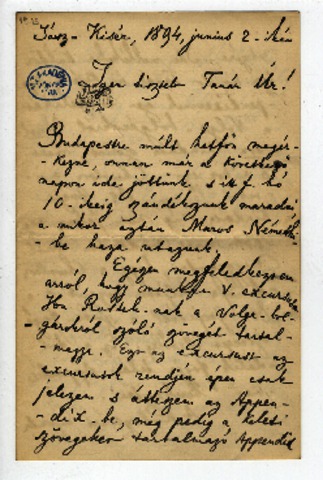 Jász-Kisér, 1894, június 2-ikén
Igen tisztelt Tanár Úr!
Budapestre múlt hétfőn megér-
-kezve, onnan már a következő
napon ide jöttünk s itt f. hó
10-ikéig szándékozunk maradni,
a mikor aztán Maros Németi-
-be haza utazunk.
Egészen megfeledkeztem
arról, hogy munkám V. excursusa
Ibn Rusteh-nak a Volga-bol-
-gárokról szóló szövegét tartal-
-mazza. Ezt az excursust az
excursusok rendjén épen csak
jelezem s átteszem az Appen-
-dix-be, még pedig a keleti
szövegeket tartalmazó Appendix